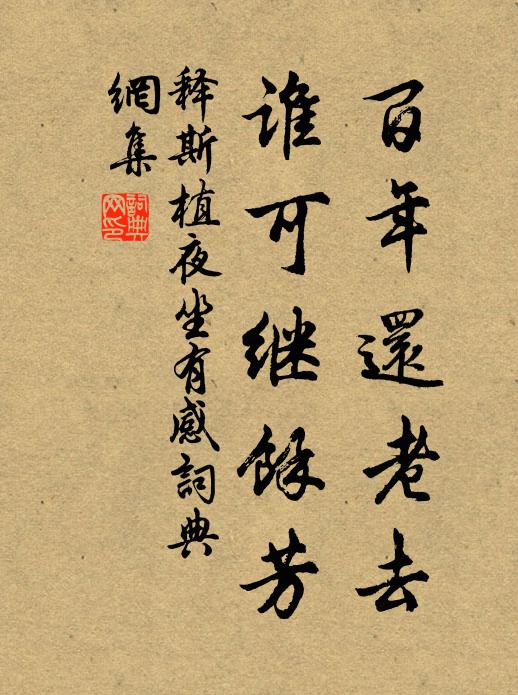 百年還老去
誰可继餘芳
释斯植夜坐有感詞典
網集
詞典
网印